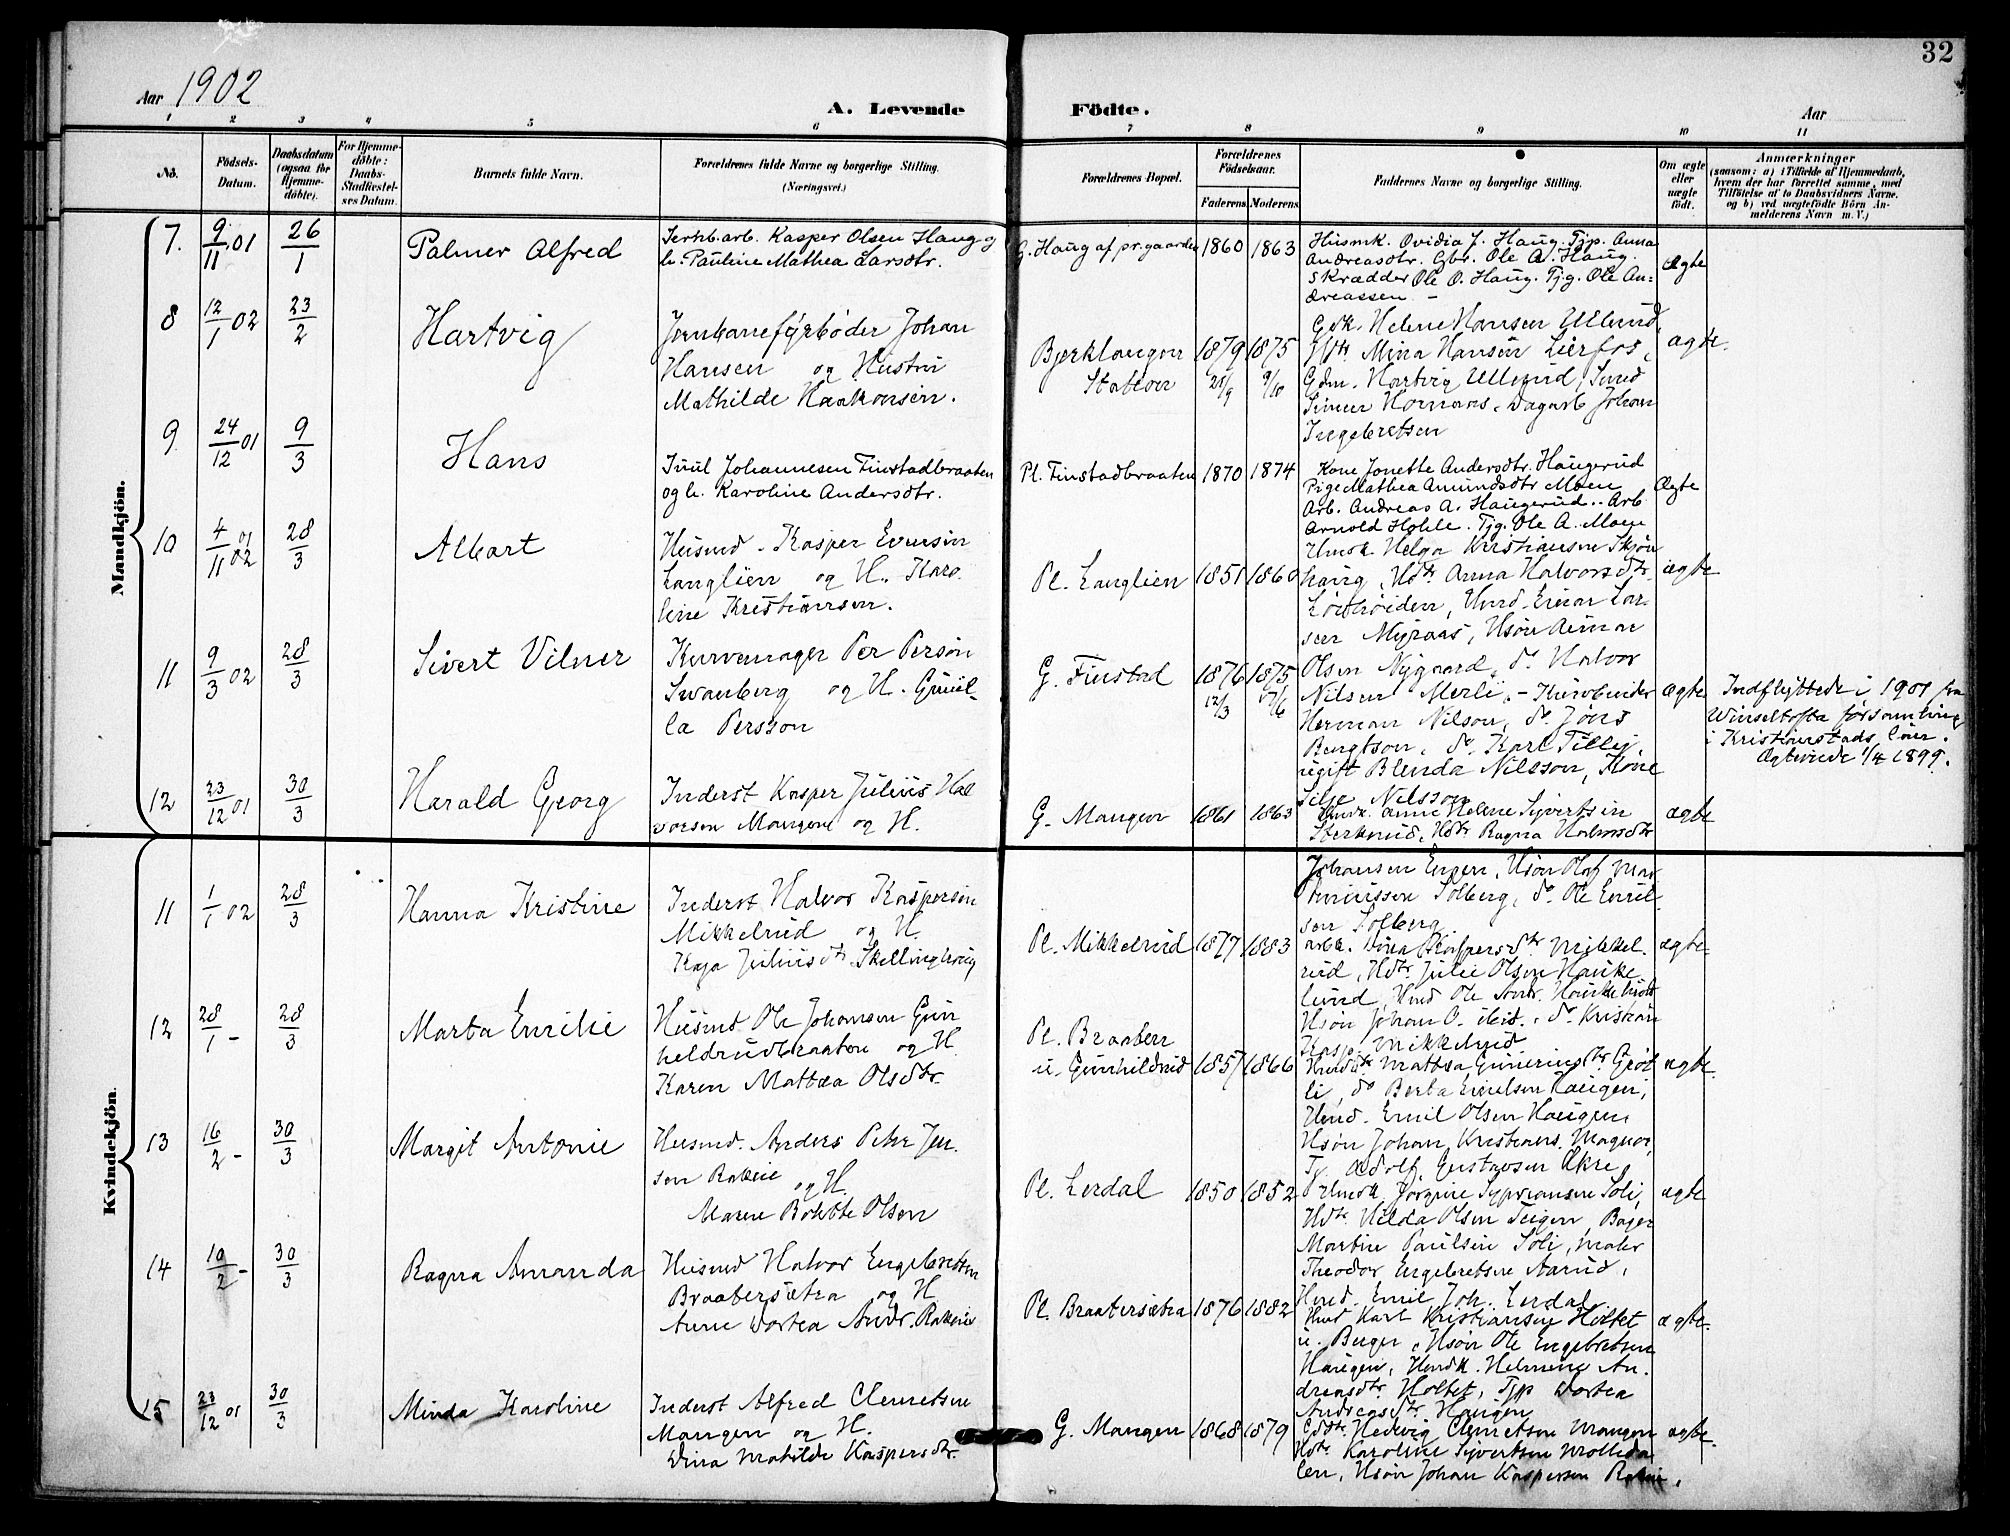 32
Aar 1902
A. Levende
Födte.
Aar
1 2 3 4 5 6 7 8 9 10 11
No.
Födsels-
Datum.
Daabsdatum
(ogsaa for
Hjemme-
döbte).
For Hjemme-
döbte:
Daabs-
Stadfæstel-
ses Datum.
Barnets fulde Navn.
Forældrenes fulde Navne og borgerlige Stilling.
(Næringsvei.)
Forældrenes Bopæl.
Forældrenes
Födselsaar.
Faderens
Moderens
Faddernes Navne og borgerlige Stilling.
Om ægte
eller
uægte
födt.
Anmærkninger
(saasom: a) i Tilfælde af Hjemmedaab,
hvem der har forrettet samme, med
Tilföielse af to Daabsvidners Navne.
og b) ved uægtefödte Börn An-
melderens Navn m. V.)
Mandkjön.
7. 9/11 01 26/1 Palmer Alfred
Jernb.arb. Kasper Olsen Haug og
h. Pauline Mathea Larsdtr.
G. Haug af pr.gaarden 1860 1863
Husmk. Ovidia J. Haug. Tjp. Anna
Andreasdtr. Gbr. Ole A. Haug.
Skrædder Ole O. Haug. Tjg. Ole An=
dreassen. –
Ægte
8 12/1 02 23/2 Hartvig
Jernbanefyrbøder Johan
Hansen og Hustru
Mathilde Haakonsen.
Bjerklangen
Station
1879 1875
25/9 9/10
Gdk. Helene Hansen Ullerud,
Hdtr Mina Hansen Lierfos,
Gdm. Hartvig Ullerud, Smed
Simen Homaas, Dagarb Johan
Ingebretsen
ægte.
9 24/12 01 9/3 Hans
Juul Johannesen Finstadbraaten
og h. Karoline Andersdtr.
Pl. Finstadbraaten 1870 1874
Kone Jonette Andersdtr. Haugerud
Pige Mathea Amundsdtr Moen
Arb. Andreas A. Haugerud.. Arb
Arnold Hohle. Tjg. Ole A. Moen
Ægte
10 4/11 01 02 28/3 Albert
Husmd. Kasper Evensen
Langlien og H. Karo
line Kristiansen.
Pl. Langlien 1851 1860
Hmdk. Helga Kristiansen Skjøn
haug, Hdtr Anna Halvorsdtr
Hmd. Einar Lar-
sen Myraas, Hsøn Einar
Olsen Nygaard, do Halvor
Nilsen Merli, –
ægte
11 9/3 02 28/3 Sivert Vilner
Kurvemager Per Person
Svanberg og H. Gunil-
la Persson
G. Finstad 1876 1875
12/3 17/6
Kurvbinder
Herman Nilson, do Jöns
Bengtson, do Karl Tilly,
ugift Blenda Nilsson, Kone
Silje Nilsson
ægte
Indflyttede i 1901 fra
Winseltofta församling
i Kristianstads län.
Ægteviede 1/4 1899.
12 23/12 01 30/3 Harald Georg
Inderst Kasper Julius Hal
vorsen Mangen og H.
G. Mangen 1861 1863
Hmdk. Anne Helene Syvertsen
Sterkerud, Hdtr Ragna Halvorsdtr
ægte
Kvindekjön.
Johansen Engen, Hsøn Olof Mar
tiniussen Solberg, do Ole Emil
sen Solberg
11 1/1 02 28/3 Hanna Kristine
Inderst Halvor Kaspersen
Mikkelrud og H.
Kaja Juliusdtr Skellinghaug
Pl. Mikkelrud 1877 1883
Kaspersdtr Mikkel
rud, Hdtr Julie Olsen Hauke
lund, Hmd Ole Andr. Haukelund
Hsøn Johan O. ibid., do Kristian
Kasp. Mikkelrud
ægte
12 28/1 – 28/3 Marta Emilie
Husmd Ole Johansen Gun
heldrudbraaten og H.
Karen Mattea Olsdtr.
Pl. Braaten
u. Gunhildrud 1857 1866
Mattea Gunneriusdtr Grøt
li, do Berta Emilsen Haugen,
Hmd. Emil Olsen Haugen
Hsøn Johan Kristians. Magnor,
Tj. Adolf Gustavsen Åkre
ægte.
13 16/2 – 30/3 Margit Antonie
Husmd. Anders Peter Jen
sen Rakeie
og H.
Maren Bolette Olsen
Pl. Lerdal 1850 1852
Hmdk. Jørgine Syversen Soli,
Hdtr. Hilda Olsen Teigen, Bager
Martin Paulsen Soli, Maler
Theodor Engebretsen Aarud,
Hmd. Emil Joh. Lerdal
ægte
14 10/2 – 30/3 Ragna Amanda
Husmd Halvor Engebretsen
Braatersætra og H
Anne Dortea Andr. Rakeie
Pl. Braatersætra 1876 1882
Hmd Karl Kristiansen Holtet
u. Berger, Hsøn Ole Engebretsen
Haugen, Hmdk. Helmine An
dreasdtr Holtet, Tjp Dortea
Andreasdtr Haugen
ægte.
15 23/12 01 30/3 Minda Karoline
Inderst Alfred Clemetsen
Mangen og H.
Dina Mathilde Kaspersdtr.
G. Mangen 1868 1879
Gdtr Hedvig Clemetsen Mangen
Hdtr Karoline Syvertsen Molleda
len, Hsøn Johan Kaspersen Rakeie.
ægte.